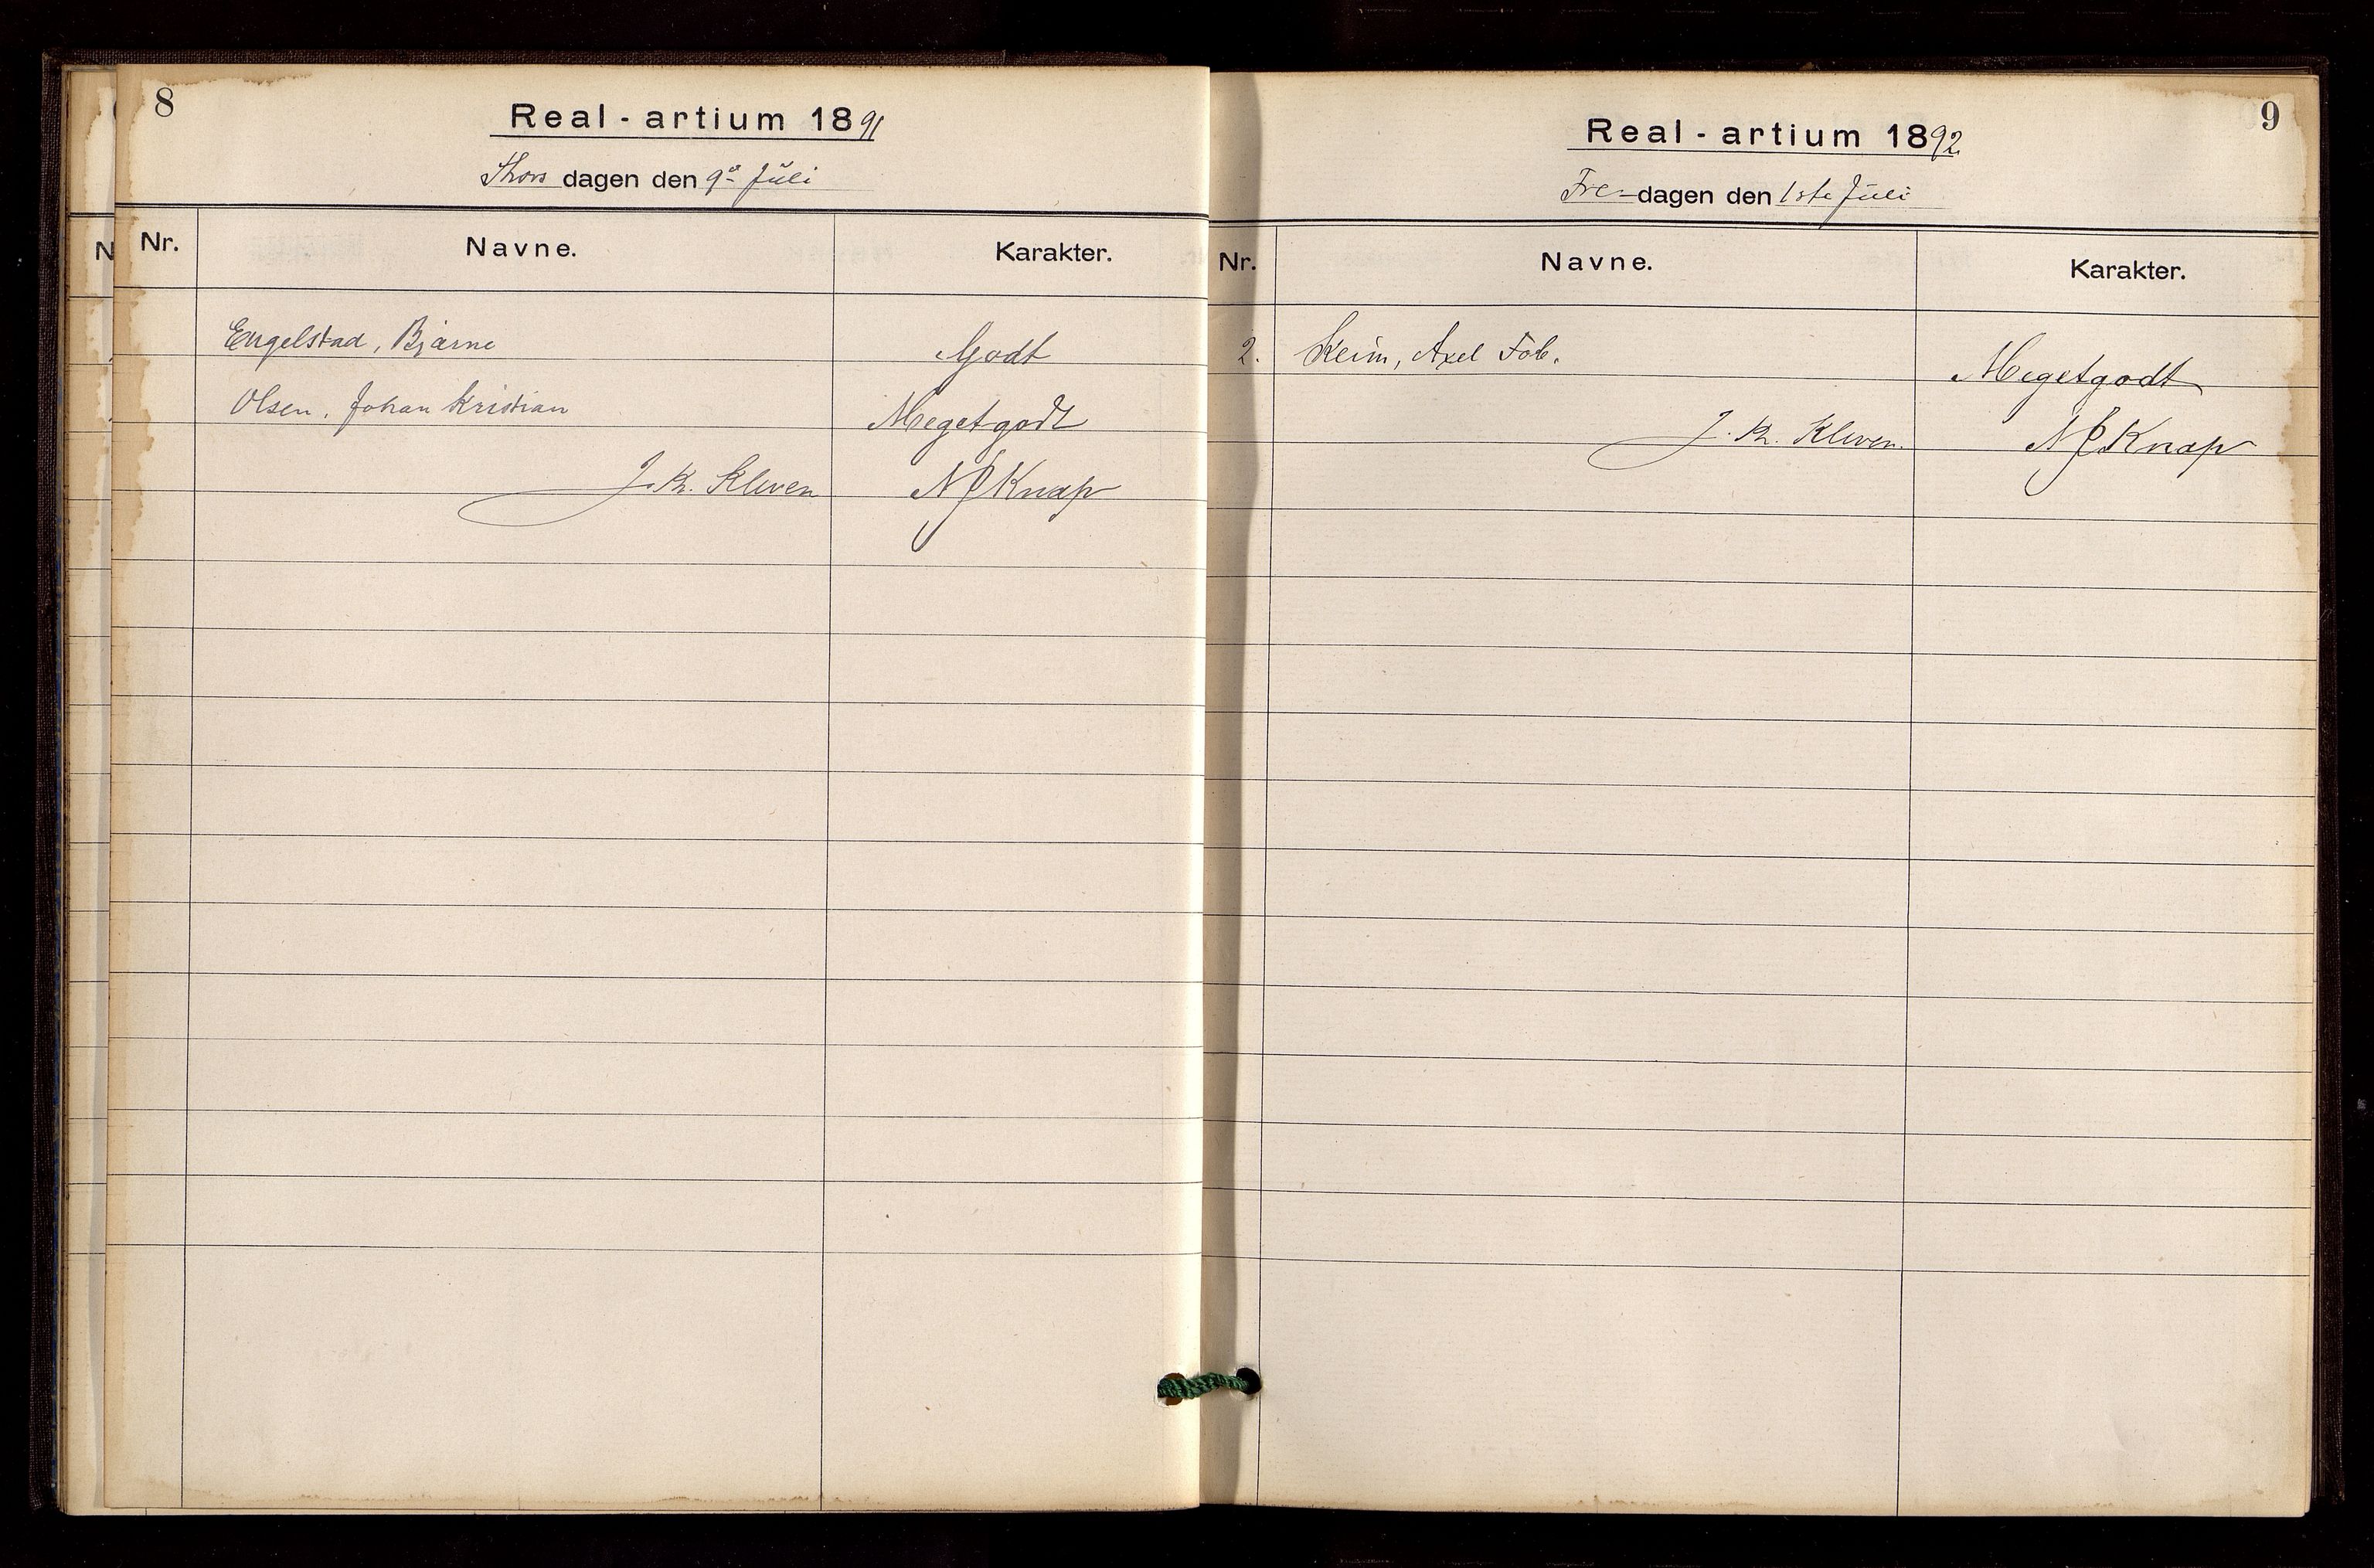 8
Real-artium 1891
Thors dagen den 9de Juli
Nr. Navne. Karakter.
Engelstad, Bjarne Godt
Olsen, Johan Kristian Megetgodt
J. Kr. Kleven N J Knap
9
Real-artium 1892
Fre-dagen den 1ste Juli
Nr. Navne. Karakter.
2. Keim, Axel Tob. Megetgodt
J. Kr. Kleven N J Knap